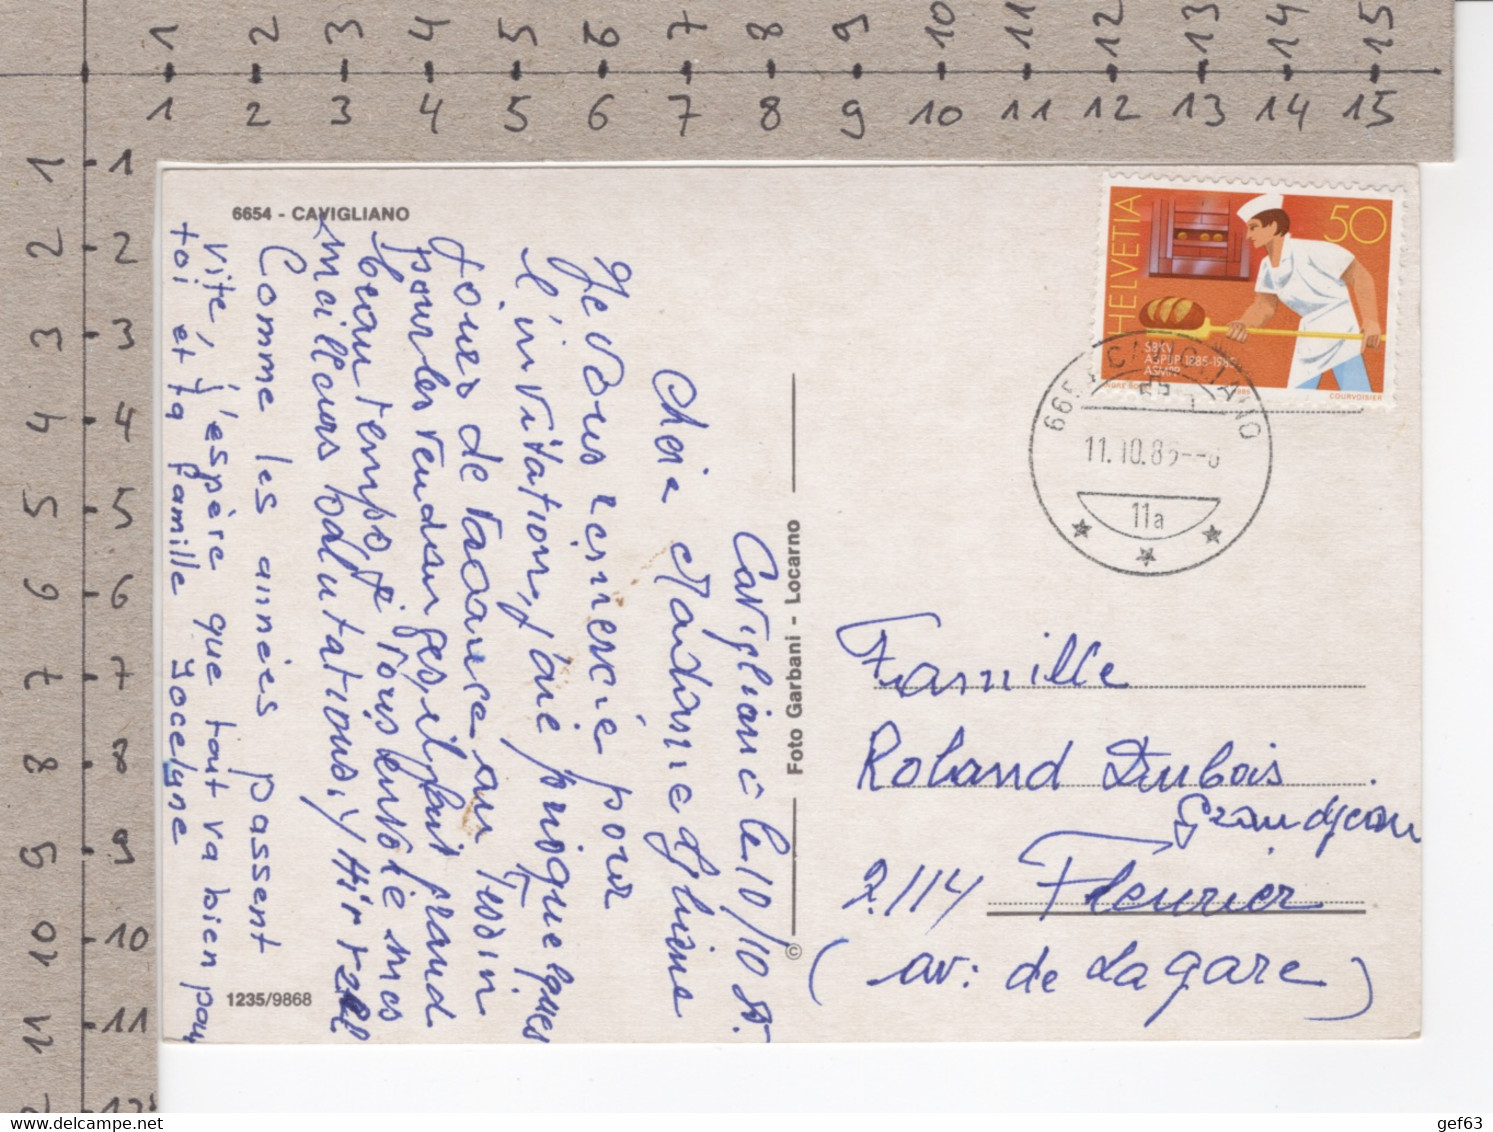 1 2 3 4 5 6 7 8 9 10 11 12 13 14 15
1 2 3 4 5 6 7 8 9 10 11 12 13 14 15
1 1
2 2
3 3
4 4
5 5
6 6
7 7
8 8
9 9
10 10
11 11
6654 - CAVIGLIANO
Cavigliano le 10/10 85.
Chère Madame
Je vous remercie pour
l'invitation, j'ai presque quelques
jours de vacances au Tessin
pour les vendanges, il fait grand
beau temps. je vous envoie mes
meilleurs salutations,
Comme les années passent
vite, j'espère que tout va bien pour
toi et ta famille Jocelyne
1235/9868
Foto Garbani - Locarno
©
HELVETIA
50
SBKV
ASPBP 1885-1985
ASMPP
COURVOISIER
6654 CAVIGLIANO
11.10.85
11a
Famille
Roland Dubois
Grandjean
2114 Fleurier
(av: de La gare)
gef63